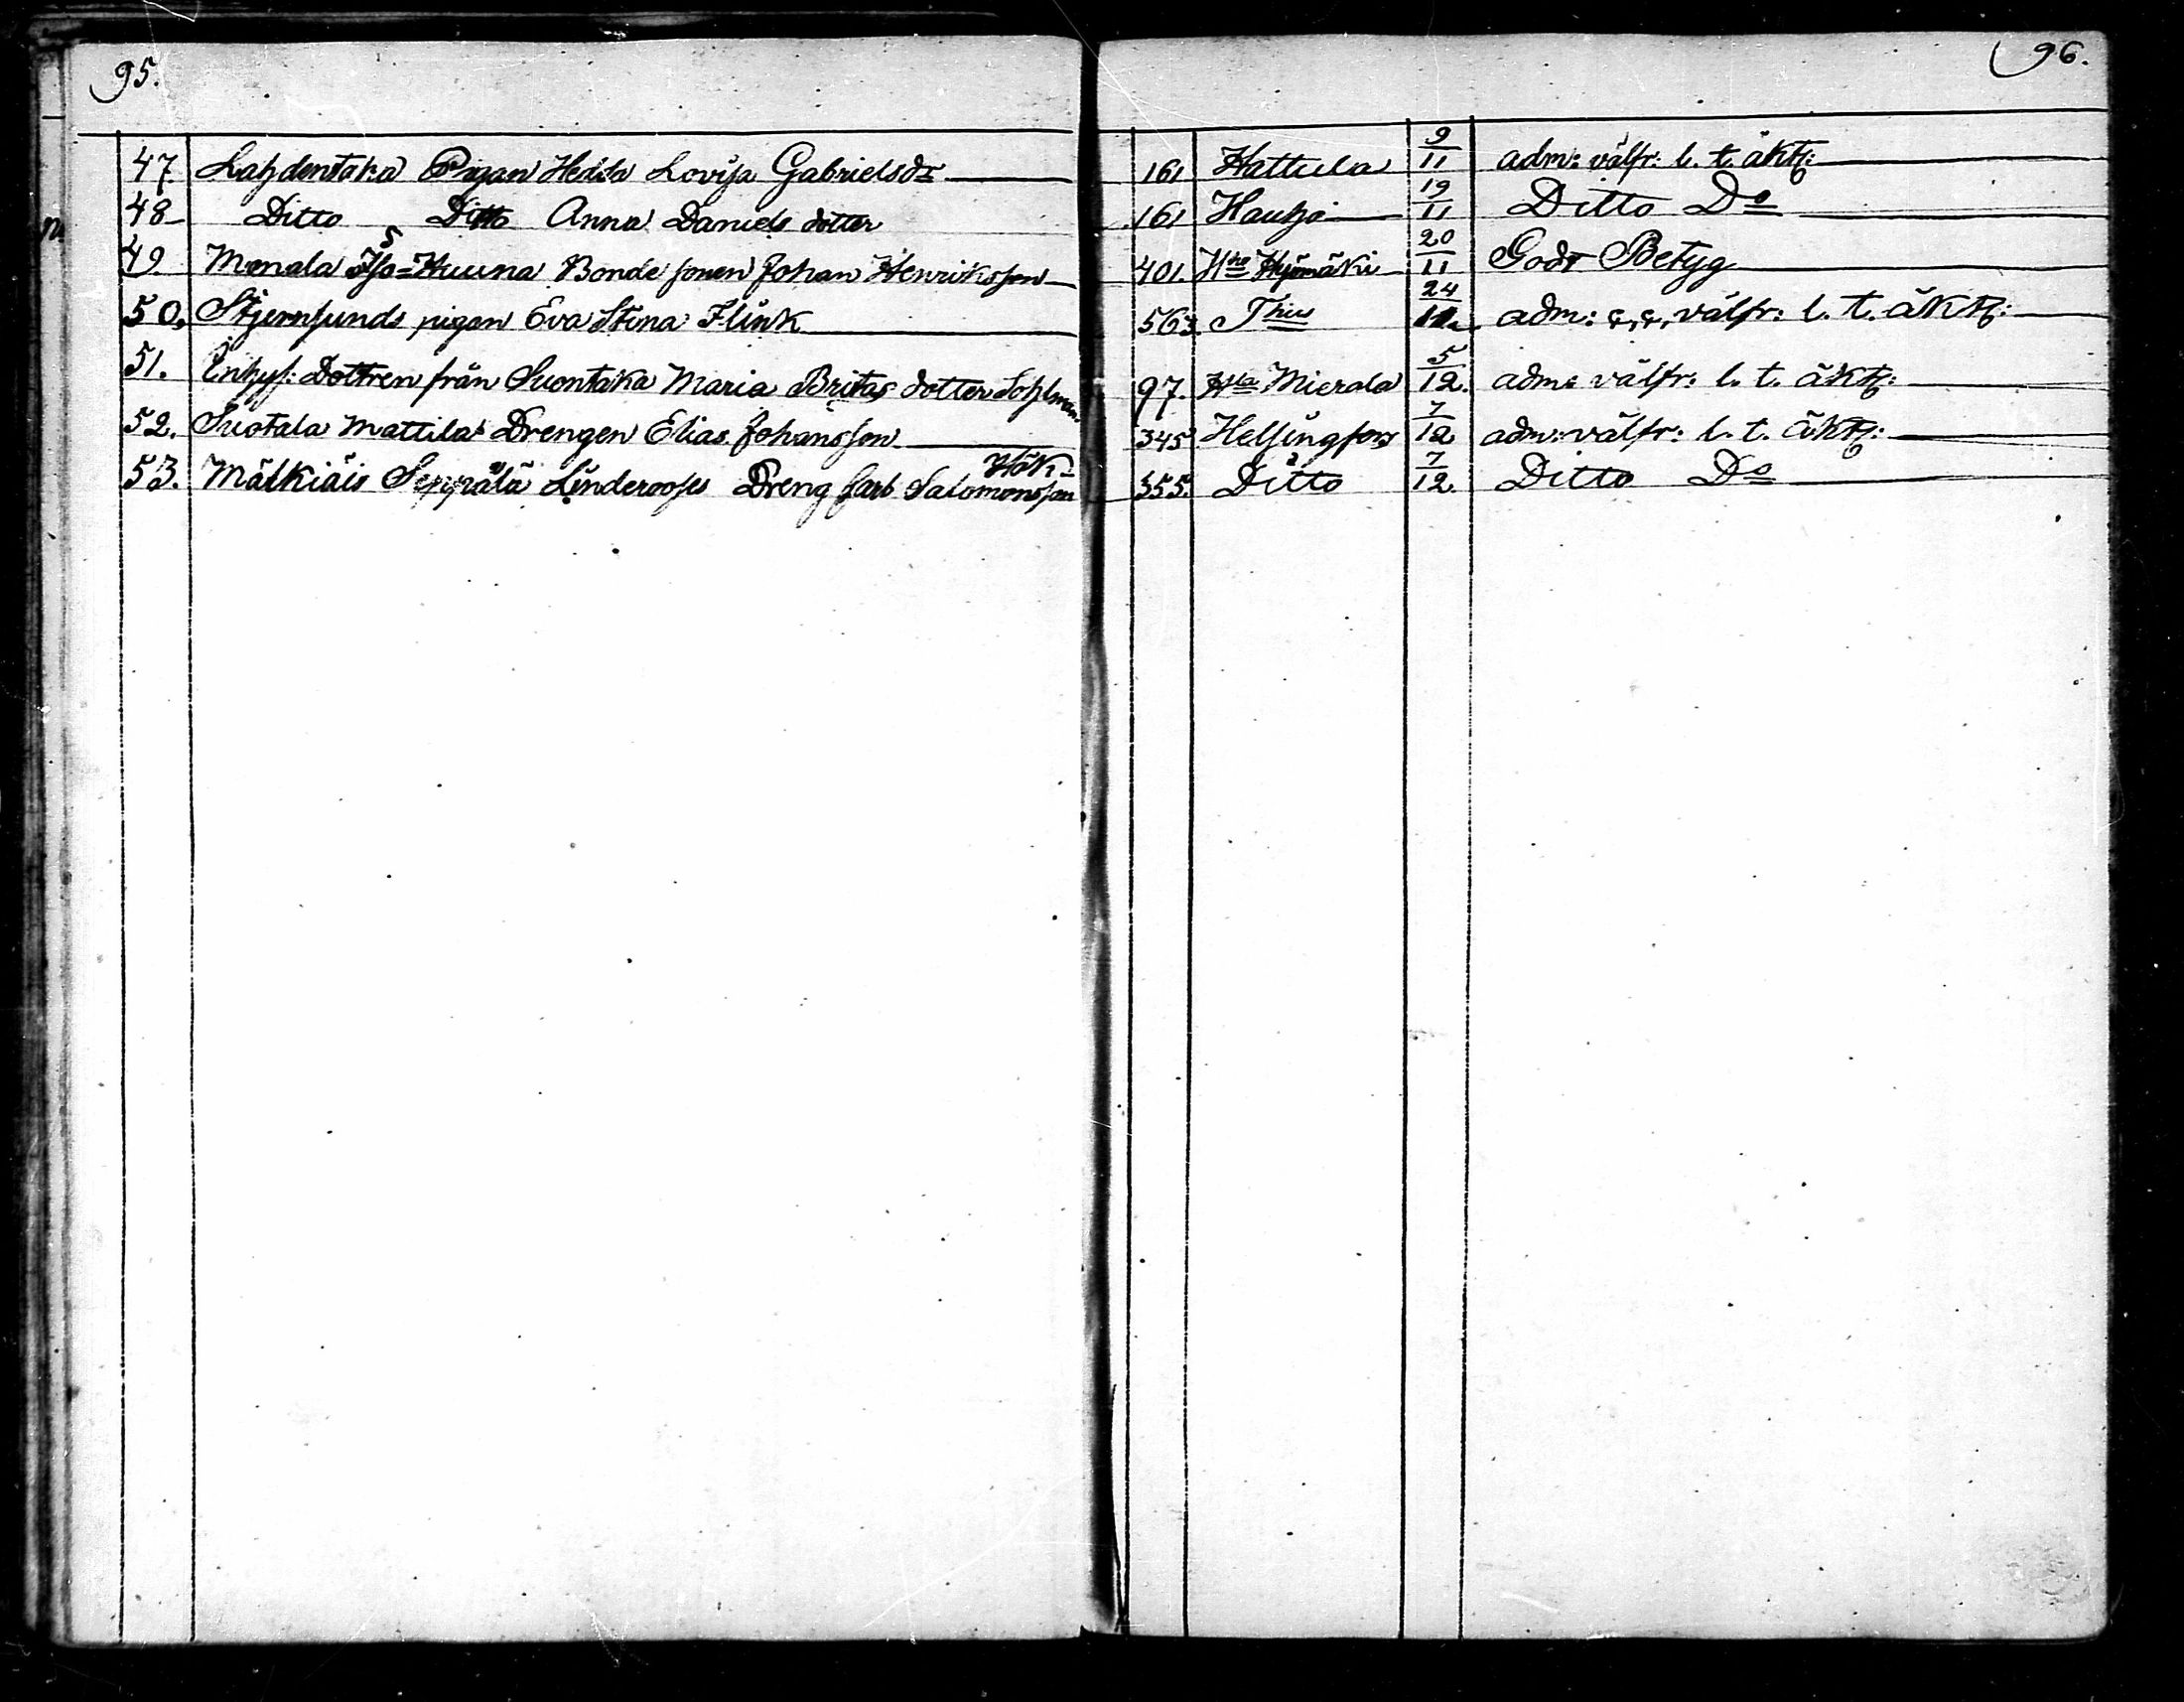 95.
96.
47. Lahdentaka Pigan Hedda Lovisa Gabrielsdr 161 Hattula 9/11 adm: välfr: l. t. äktsk:
48 Ditto Ditto Anna Daniels dotter 161 Hauho 19/11 Ditto Do
49. Menala Iso=Huuna Bonde sonen Johan Henriksson 401. 20/11 Godt Betyg
50. Stjernsunds pigan Eva Stina Flink 563. Thus 24/11 adm: välfr: l. t. äktsk:
51. Inhys: Dottren från Suontaka Maria Britas dotter Sohlman 97. Hla Mierola 5/12. adm: välfr: l. t. äktsk:
52. Suotala Mattila Drengen Elias Johansson 345 Helsingfors 7/12 adm: välfr: l. t. äktsk:
Hök
53. Mälkiäis Seppälä Linderooses Dreng Carl Salomonsson 355. Ditto 7/12. Ditto Do